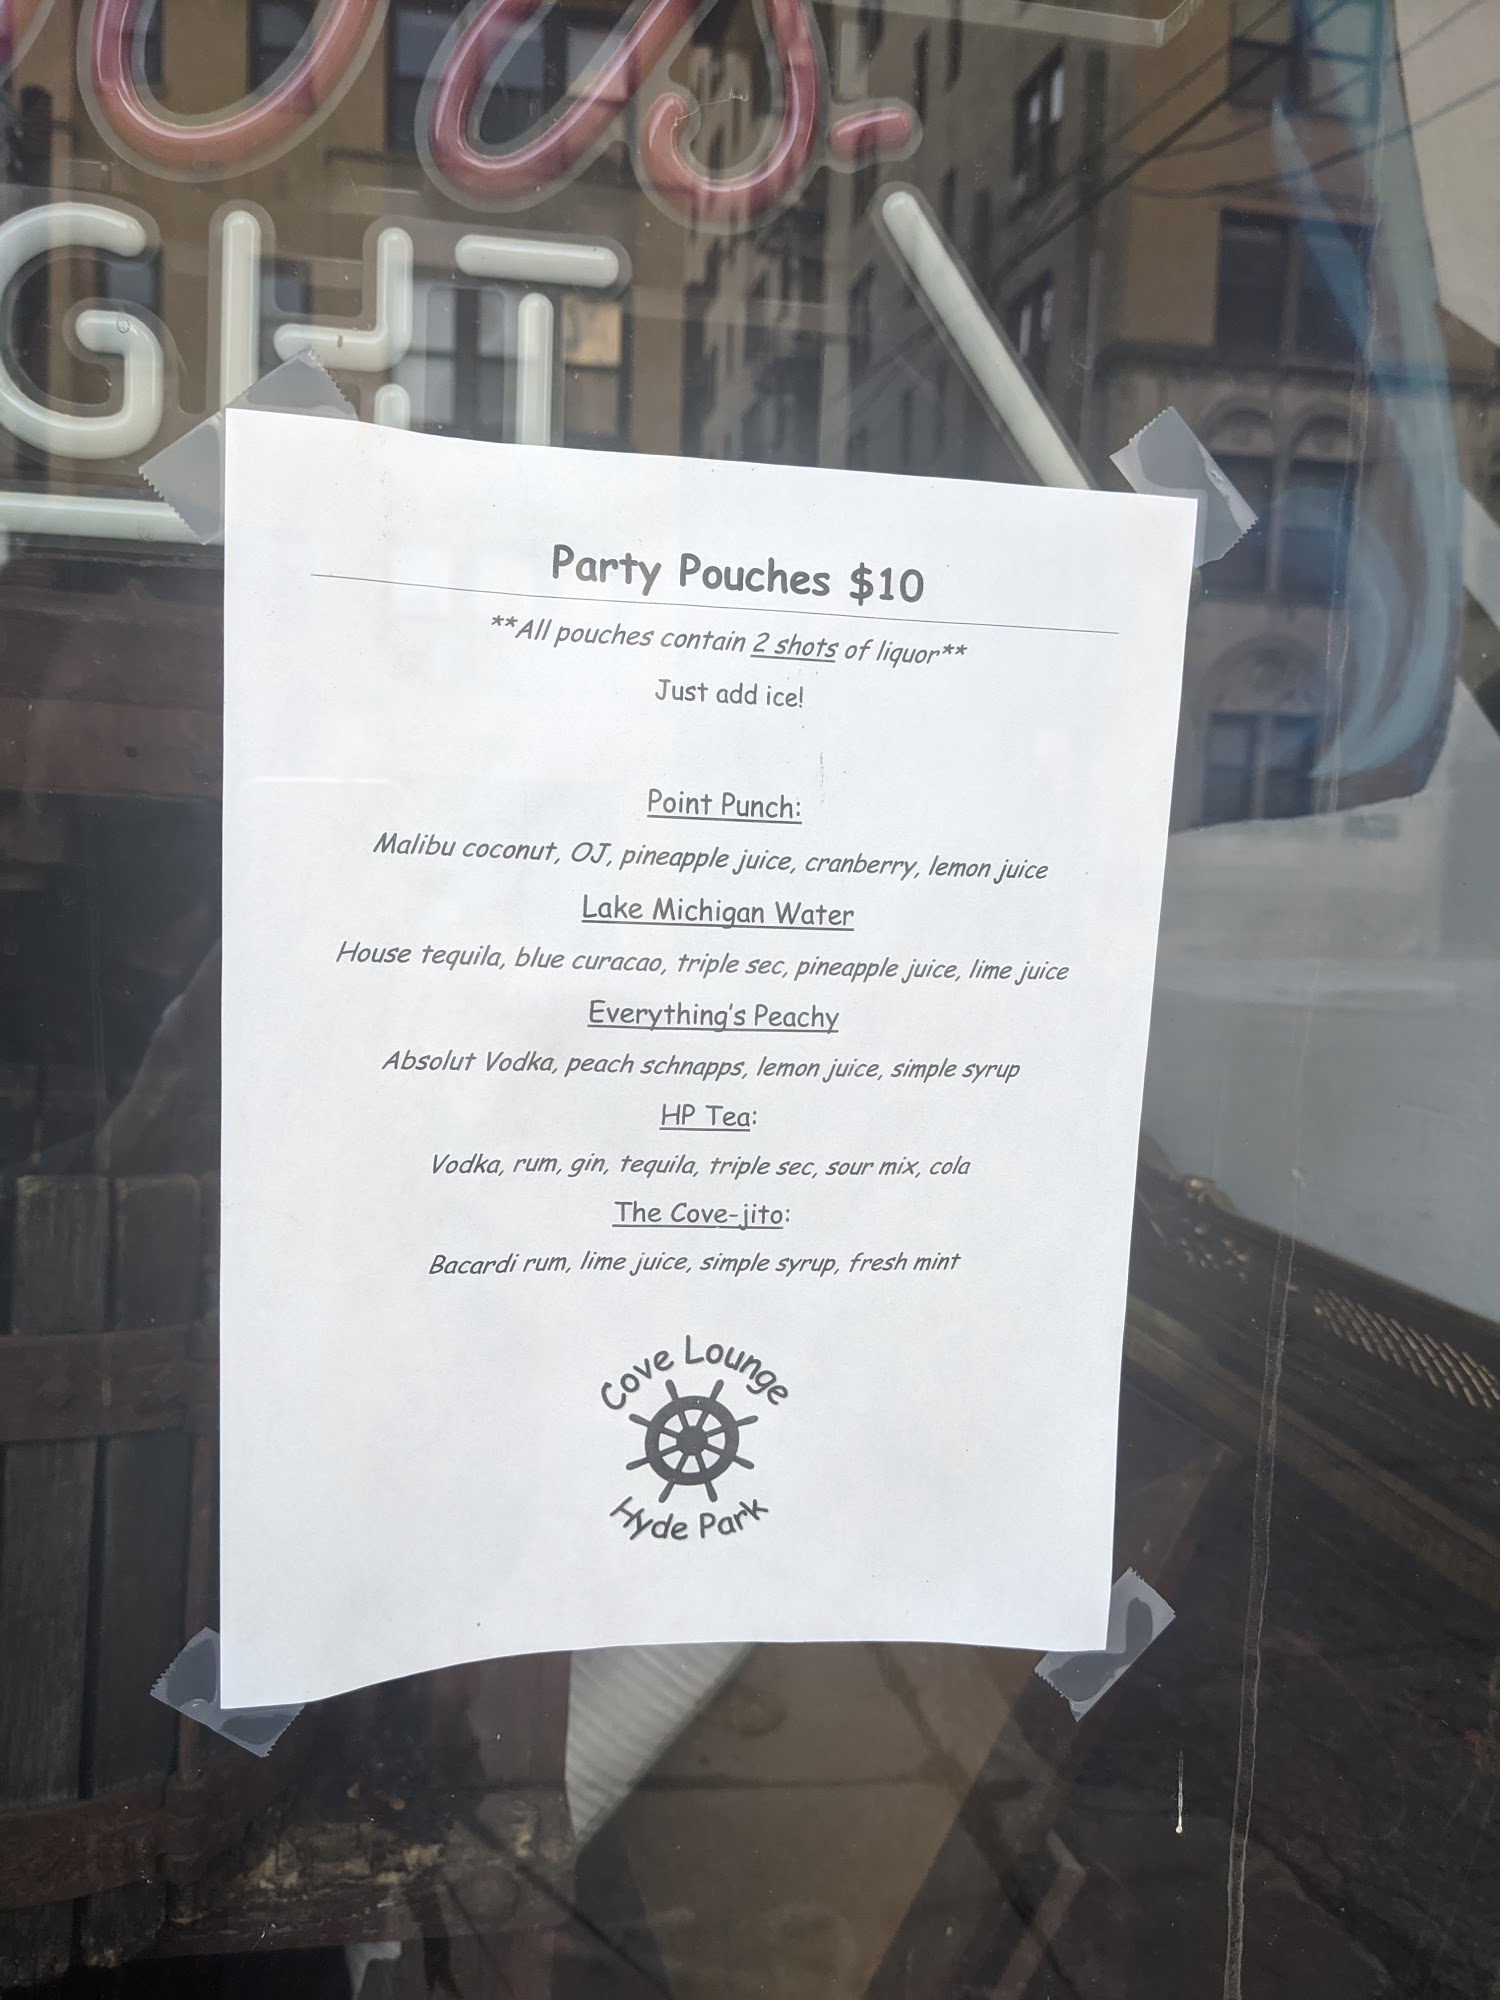 GHT
Party Pouches $10
**All pouches contain 2 shots of liquor**
Just add ice!
Point Punch:
Malibu coconut, OJ, pineapple juice, cranberry, lemon juice
Lake Michigan Water
House tequila, blue curacao, triple sec, pineapple juice, lime juice
Everything's Peachy
Absolut Vodka, peach schnapps, lemon juice, simple syrup
HP Tea:
Vodka, rum, gin, tequila, triple sec, sour mix, cola
The Cove-jito:
Bacardi rum, lime juice, simple syrup, fresh mint
Cove Lounge
Hyde Park